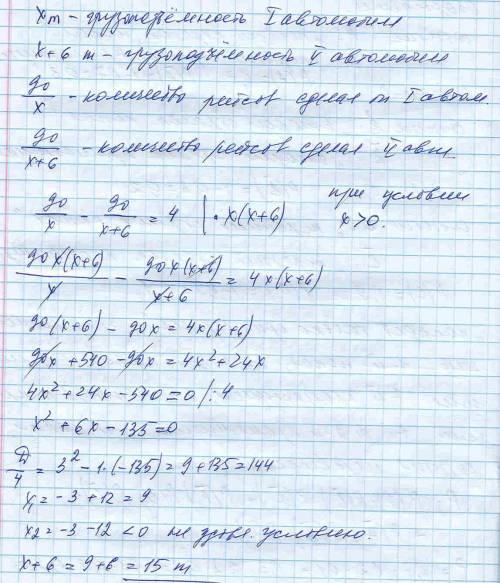 x т - грузоподъёмность I автомобиля
x+6 т - грузоподъёмность II автомобиля
90/x - количество рейсов сделал I автом
90/(x+6) - количество рейсов сделал II авт.
90/x - 90/(x+6) = 4 | · x(x+6) при условии x>0.
90x(x+6)/x - 90x(x+6)/(x+6) = 4x(x+6)
90(x+6) - 90x = 4x(x+6)
90x + 540 - 90x = 4x² + 24x
4x² + 24x - 540 = 0 /:4
x² + 6x - 135 = 0
D/4 = 3² - 1·(-135) = 9 + 135 = 144
x₁ = -3 + 12 = 9
x₂ = -3 - 12 < 0 не удовл. условию.
x+6 = 9+6 = 15 т